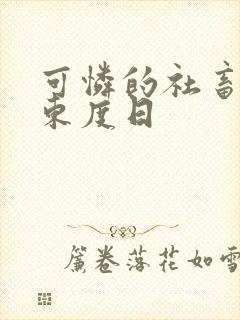 可憐的社畜
東度日
簾卷落花如雪